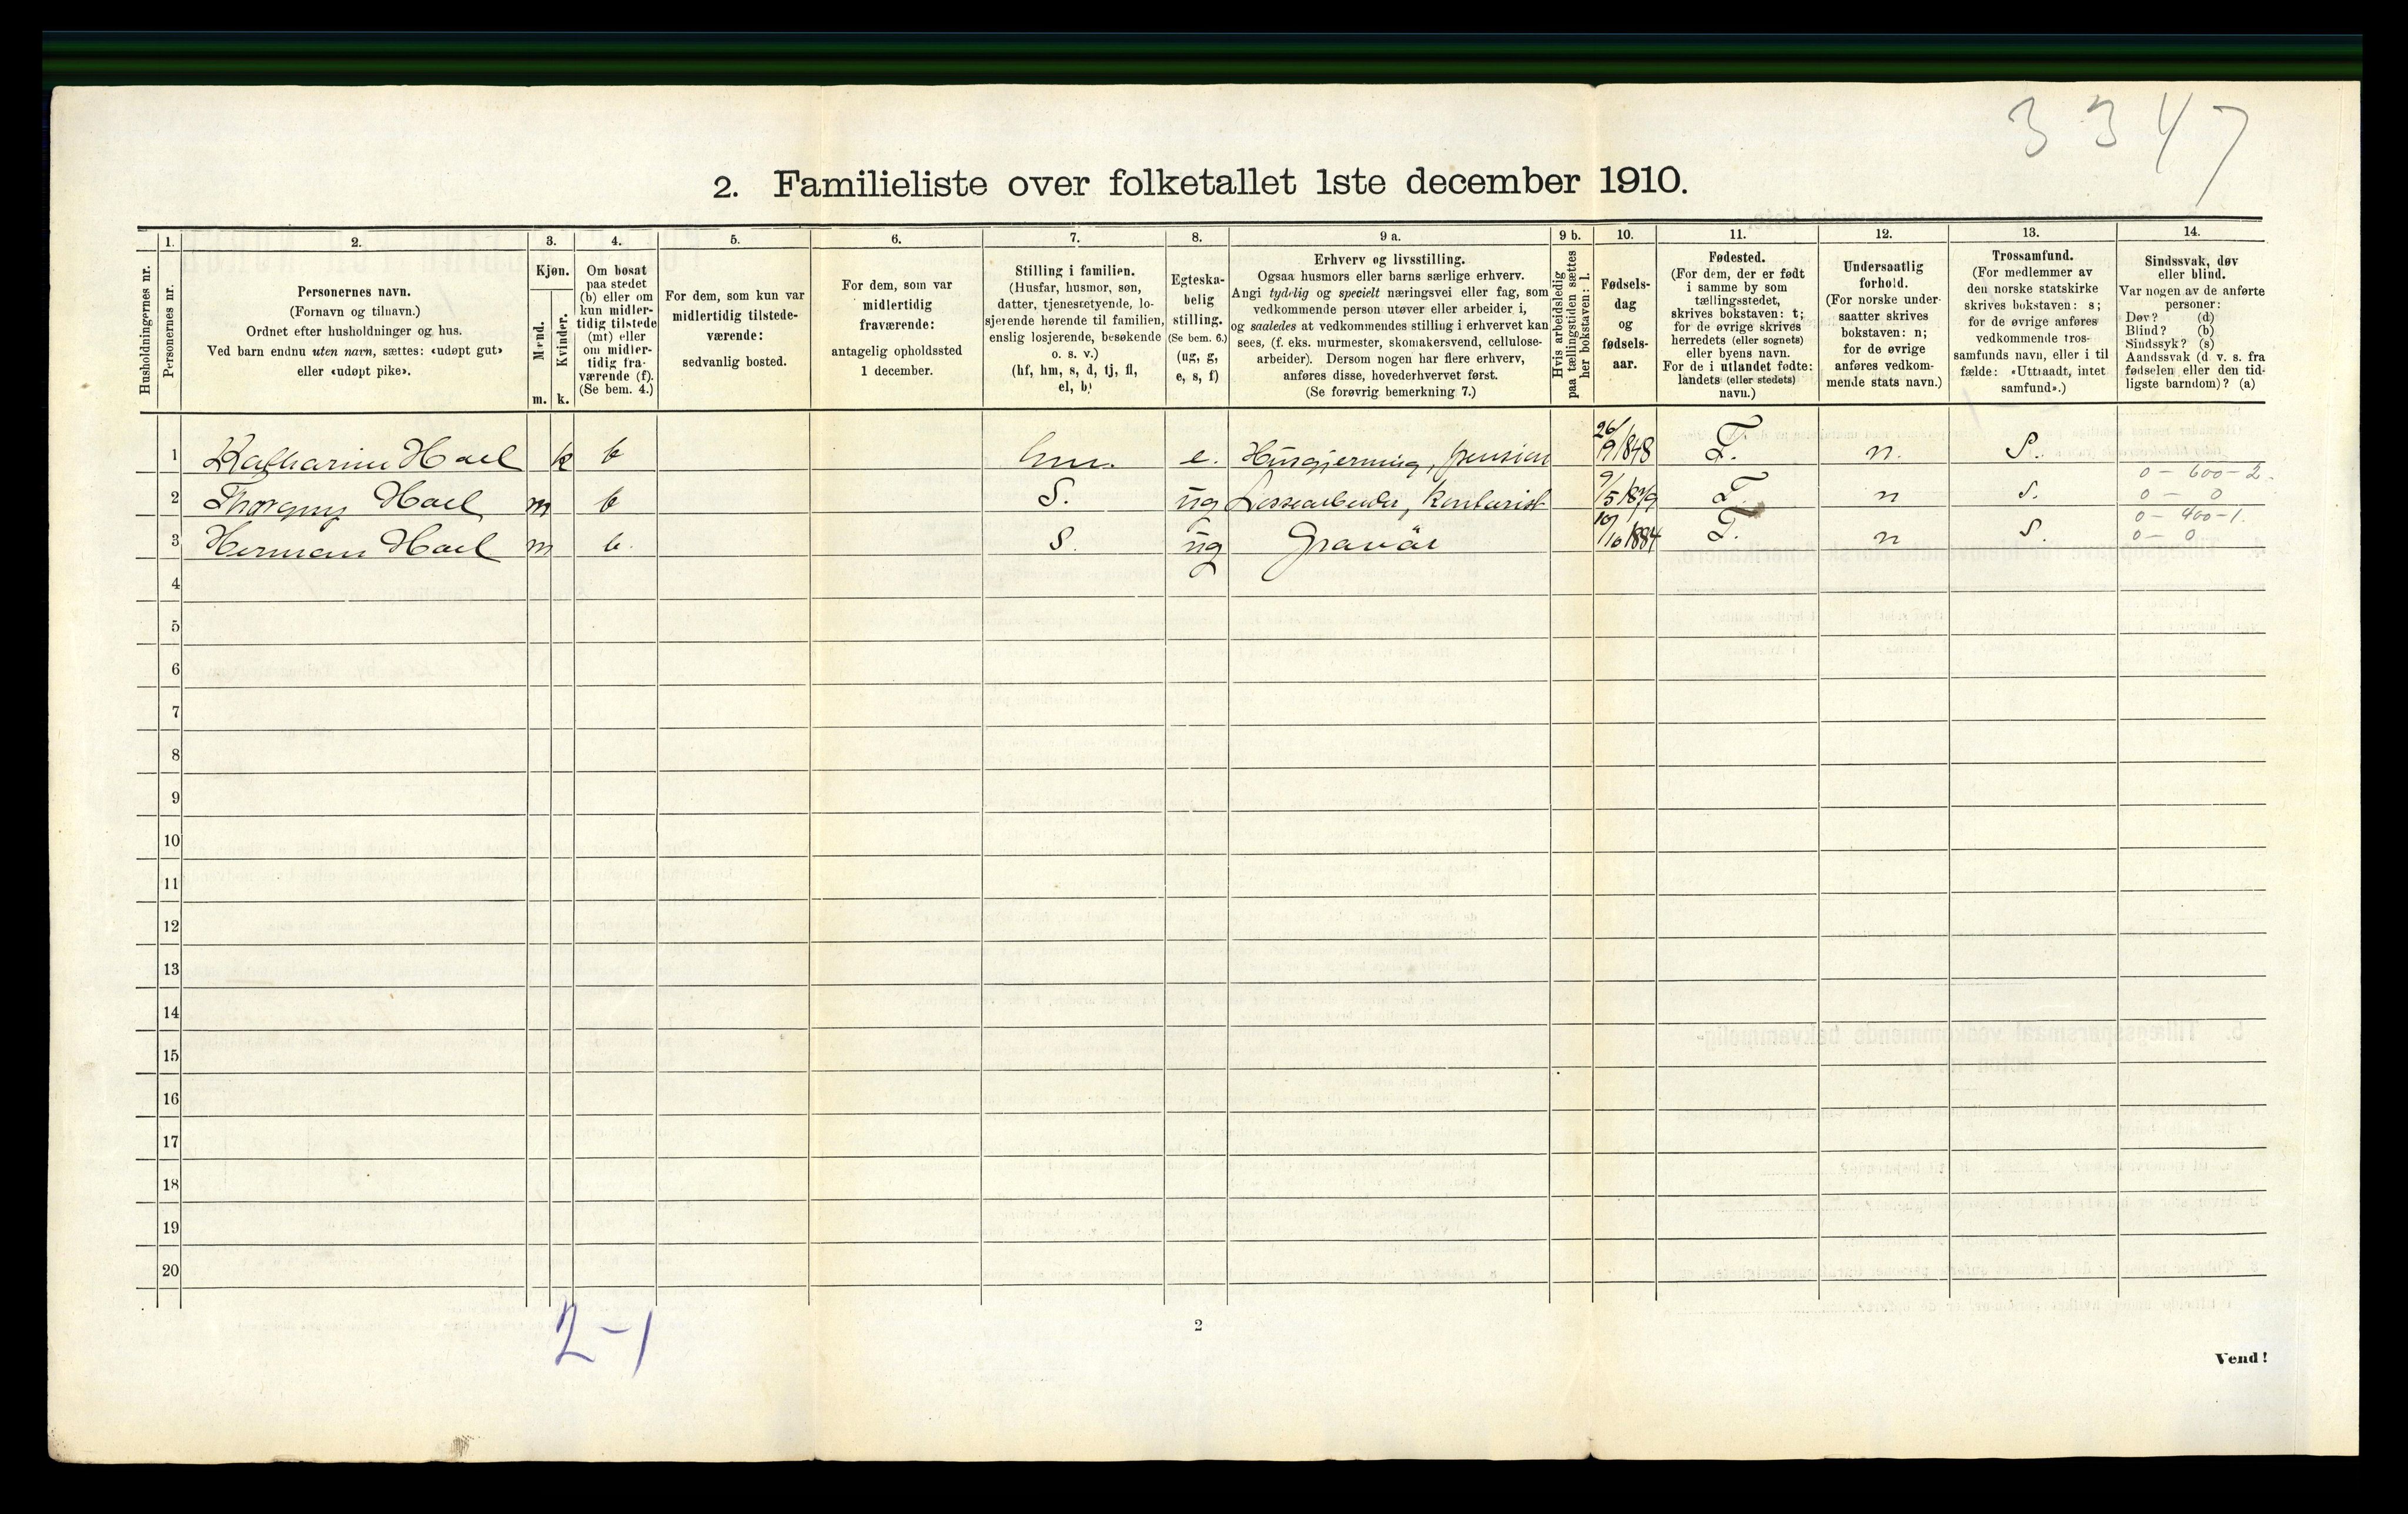 3347
2. Familieliste over folketallet 1ste december 1910.
Husholdningernes nr.
1.
Personernes nr.
2.
Personernes navn.
(Fornavn og tilnavn.)
Ordnet efter husholdninger og hus.
Ved barn endnu uten navn, sættes: «udøpt gut»
eller «udøpt pike».
3.
Kjøn.
Mænd.
Kvinder.
m. k.
4.
Om bosat
paa stedet
(b) eller om
kun midler-
tidig tilstede
(mt) eller
om midler-
tidig fra-
værende (f).
(Se bem. 4.)
5.
For dem, som kun var
midlertidig tilstede-
værende:
sedvanlig bosted.
6.
For dem, som var
midlertidig
fraværende:
antagelig opholdssted
1 december.
7.
Stilling i familien.
(Husfar, husmor, søn,
datter, tjenestetyende, lo-
sjerende hørende til familien,
enslig losjerende, besøkende
o. s. v.)
(hf, hm, s, d, tj, fl,
el, b)
8.
Egteska-
belig
stilling.
(Se bem. 6.)
(ug, g,
e, s, f)
9 a.
Erhverv og livsstilling.
Ogsaa husmors eller barns særlige erhverv.
Angi tydelig og specielt næringsvei eller fag, som
vedkommende person utøver eller arbeider i,
og saaledes at vedkommendes stilling i erhvervet kan
sees, (f. eks. murmester, skomakersvend, cellulose-
arbeider). Dersom nogen har flere erhverv,
anføres disse, hovederhvervet først.
(Se forøvrig bemerkning 7.)
9 b.
Hvis arbeidsledig
paa tællingstiden sættes
her bokstaven: l.
10.
Fødsels-
dag
og
fødsels-
aar.
11.
Fødested.
(For dem, der er født
i samme by som
tællingsstedet,
skrives bokstaven: t;
for de øvrige skrives
herredets (eller sognets)
eller byens navn.
For de i utlandet fødte:
landets (eller stedets)
navn.)
12.
Undersaatlig
forhold.
(For norske under-
saatter skrives
bokstaven: n;
for de øvrige
anføres vedkom-
mende stats navn.)
13.
Trossamfund.
(For medlemmer av
den norske statskirke
skrives bokstaven: s;
for de øvrige anføres
vedkommende tros-
samfunds navn, eller i til
fælde: «Uttraadt, intet
samfund».)
14.
Sindssvak, døv
eller blind.
Var nogen av de anførte
personer:
Døv? (d)
Blind? (b)
Sindssyk? (s)
Aandssvak (d v. s. fra
fødselen eller den tid-
ligste barndom)? (a)
1 Katharine Hoel k b hm. e. Husgjerning, pension 26/9 1848 T. n. S.
0 - 600 - 2.
2 Thorguy Hoel m b S. ug kontorist 9/5 1879 T. n S.
0 - 0
0 - 400 - 1.
3 Herman Hoel m b. S. ug Gravør 10/10 1884 T. n S.
0 - 0
4
5
6
7
8
9
10
11
12
13
14
15
16
17
18
19
20
2-1
2
Vend!